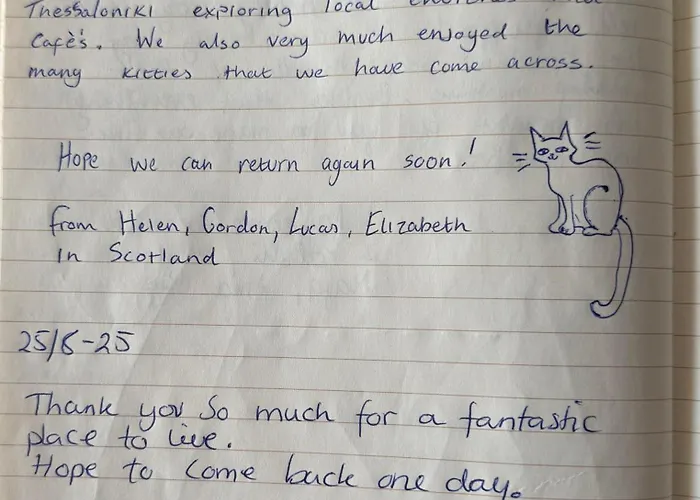 Thessaloniki exploring local
Cafè's. We also very much enjoyed the
many kitties that we have come across.
Hope we can return again soon!
from Helen, Gordon, Lucas, Elizabeth
in Scotland
25/6-25
Thank you so much for a fantastic
place to live.
Hope to come back one day.